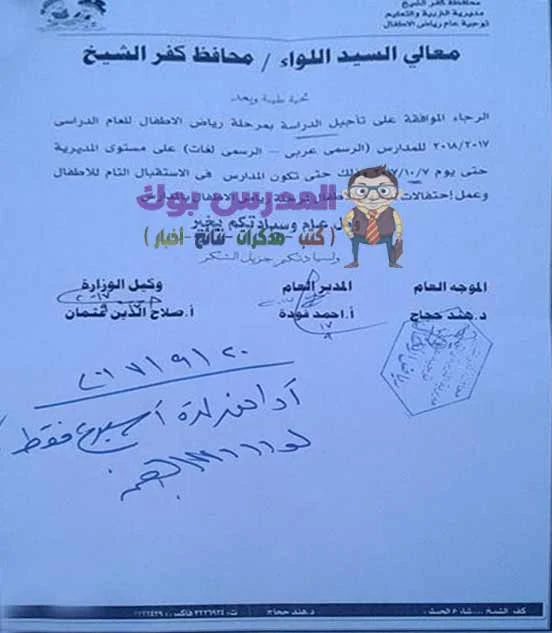 محافظة كفر الشيخ
مديرية التربية والتعليم
توجية عام رياض الاطفال
معالي السيد اللواء / محافظ كفر الشيخ
تحية طيبة وبعد
الرجاء الموافقة على تأجيل الدراسة بمرحلة رياض الاطفال للعام الدراسى
٢٠١٨/٢٠١٧ للمدارس (الرسمى عربى - الرسمى لغات) على مستوى المديرية
حتى يوم ١٠/٧ حتى تكون المدارس فى الاستقبال التام للأطفال
وعمل إحتفالات بمرحلة رياض الاطفال بالمدارس
المدرس بوك
عام وسيادتكم بخير
( كتب - مذكرات - نتائج - أخبار )
ولسيادتكم جزيل الشكر
الموجه العام المدير العام وكيل الوزارة
د. هند حجاج أ. احمد فودة أ. صلاح الدين عثمان
٢٠١٧/٩/٢٠
أوافق لمدة أسبوع فقط
كفر الشيخ د. هند حجاج ت: فاكس